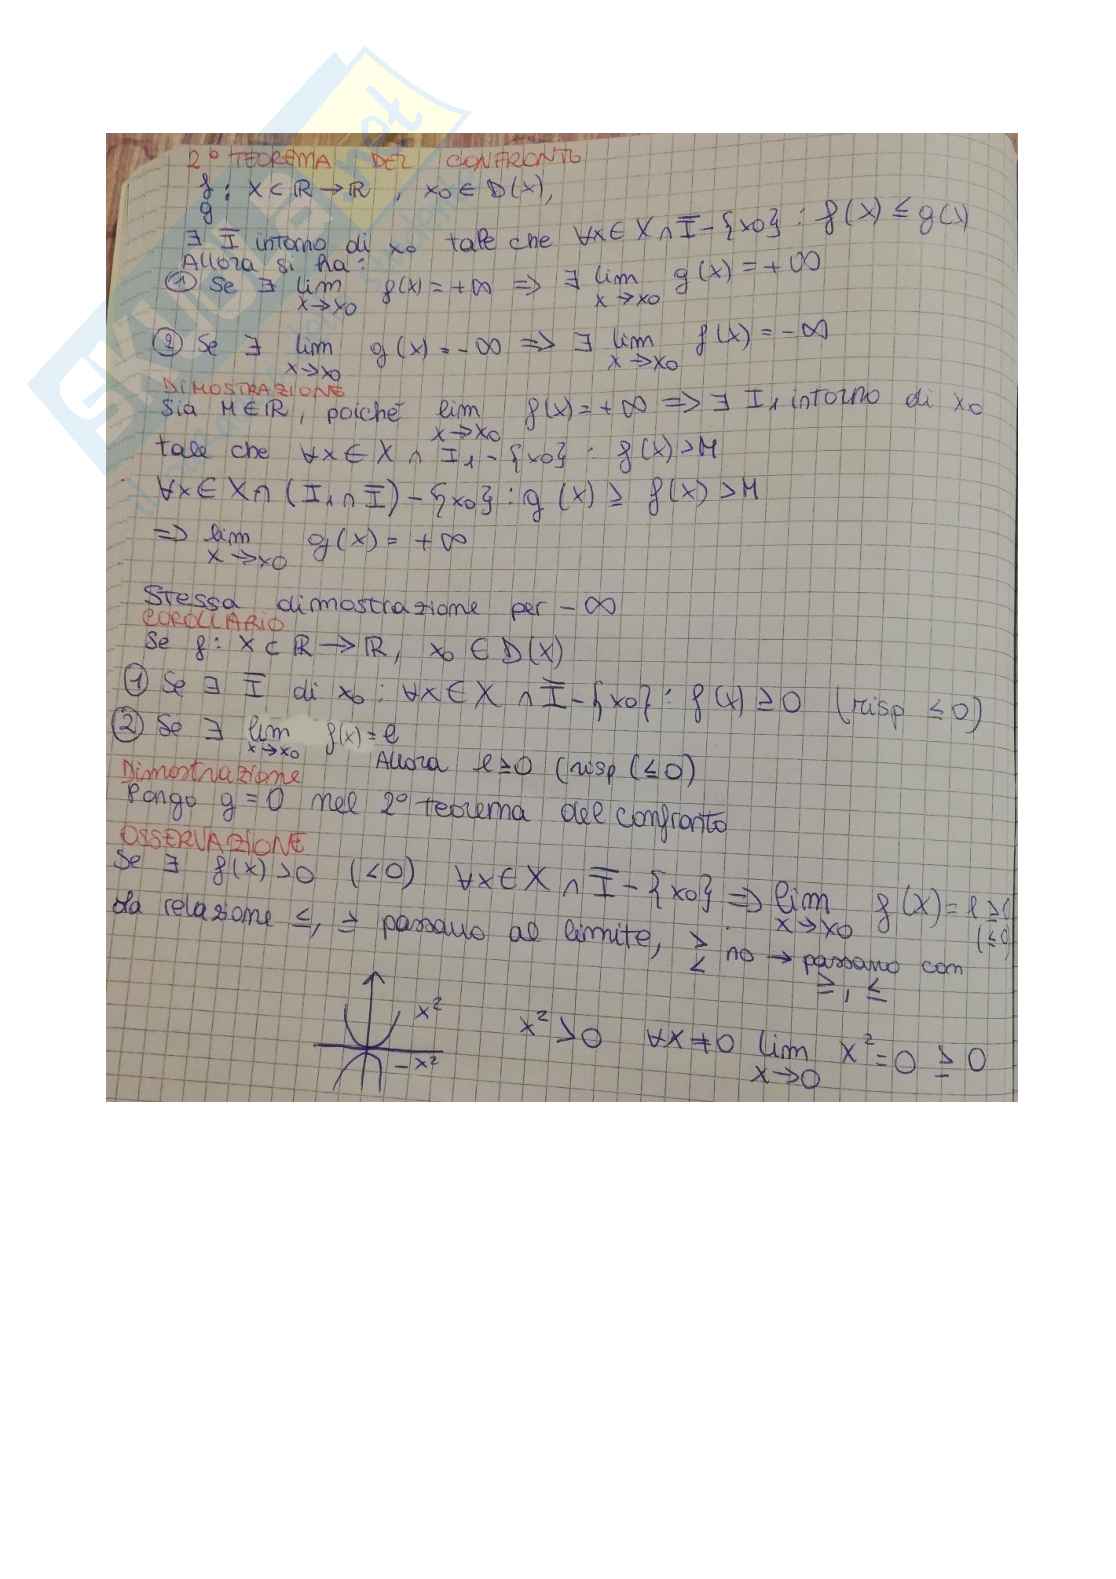 2° TEOREMA DEL CONFRONTO
f, g : X ⊂ ℝ → ℝ, x0 ∈ D(X),
∃ Ī intorno di x0 tale che ∀x ∈ X ∩ Ī - {x0} : f(x) ≤ g(x)
Allora si ha:
① Se ∃ lim x→x0 f(x) = +∞ => ∃ lim x→x0 g(x) = +∞
② Se ∃ lim x→x0 g(x) = -∞ => ∃ lim x→x0 f(x) = -∞
DIMOSTRAZIONE
Sia M ∈ ℝ, poiché lim x→x0 f(x) = +∞ => ∃ I1 intorno di x0
tale che ∀x ∈ X ∩ I1 - {x0} : f(x) > M
∀x ∈ X ∩ (I1 ∩ Ī) - {x0} : g(x) ≥ f(x) > M
=> lim x→x0 g(x) = +∞
Stessa dimostrazione per -∞
COROLLARIO
Se f : X ⊂ ℝ → ℝ, x0 ∈ D(X)
① Se ∃ Ī di x0 : ∀x ∈ X ∩ Ī - {x0} : f(x) ≥ 0 (risp ≤ 0)
② Se ∃ lim x→x0 f(x) = l
Allora l ≥ 0 (risp (≤ 0)
Dimostrazione
Pongo g = 0 nel 2° teorema del confronto
OSSERVAZIONE
Se ∃ f(x) > 0 (< 0) ∀x ∈ X ∩ Ī - {x0} => lim x→x0 f(x) = l ≥ 0 (≤ 0)
la relazione ≤, ≥ passano al limite, > < no → passano con ≥, ≤
x²
-x²
x² > 0 ∀x ≠ 0 lim x→0 x² = 0 ≥ 0